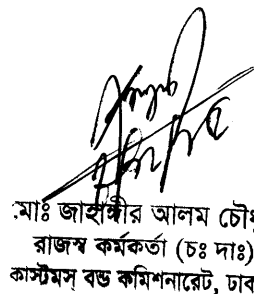 মোঃ জাহাঙ্গীর আলম চৌধু
রাজস্ব কর্মকর্তা (চঃ দাঃ)
কাস্টমস্ বন্ড কমিশনারেট, ঢাকা